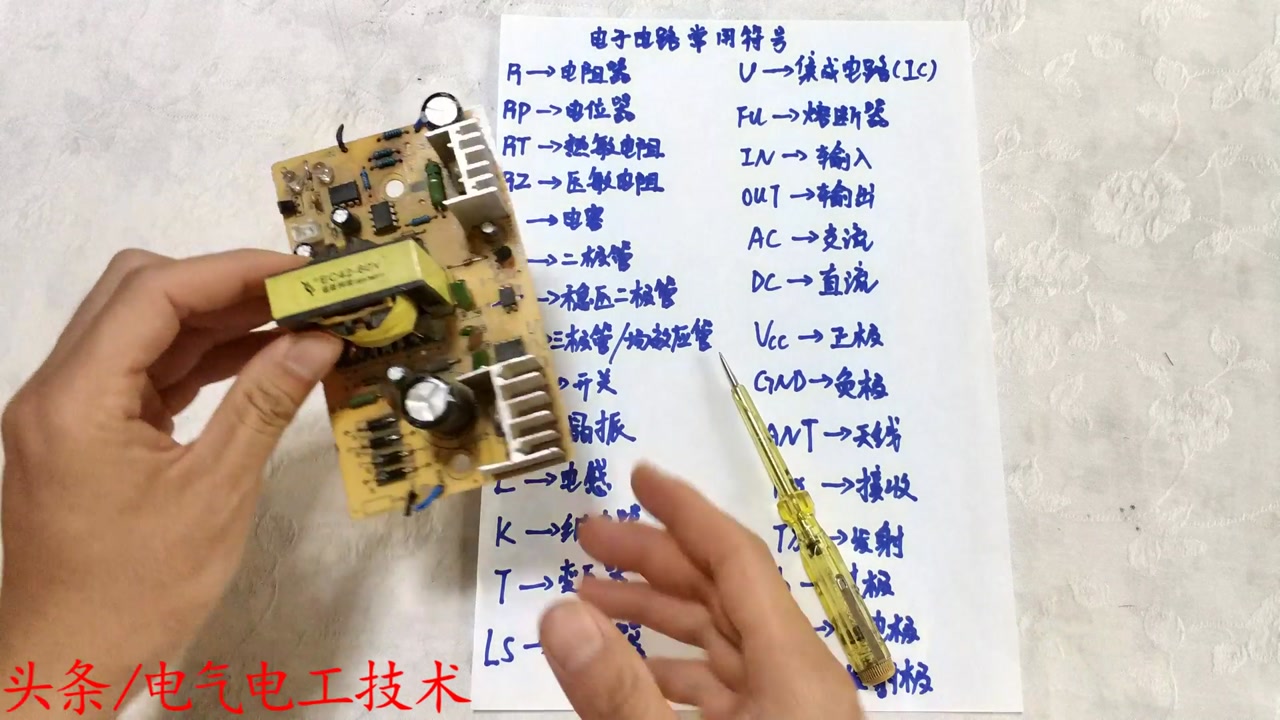 电子电路常用符号
R→电阻器
RP→电位器
RT→热敏电阻
RZ→压敏电阻
→电容
→二极管
→稳压二极管
三极管/场效应管
开关
晶振
L→电感
K→
T→变
LS→
U→集成电路(IC)
FU→熔断器
IN→输入
OUT→输出
AC→交流
DC→直流
Vcc→正极
GND→负极
ANT→天线
→接收
→发射
极
电极
射极
EC42-
头条/电气电工技术